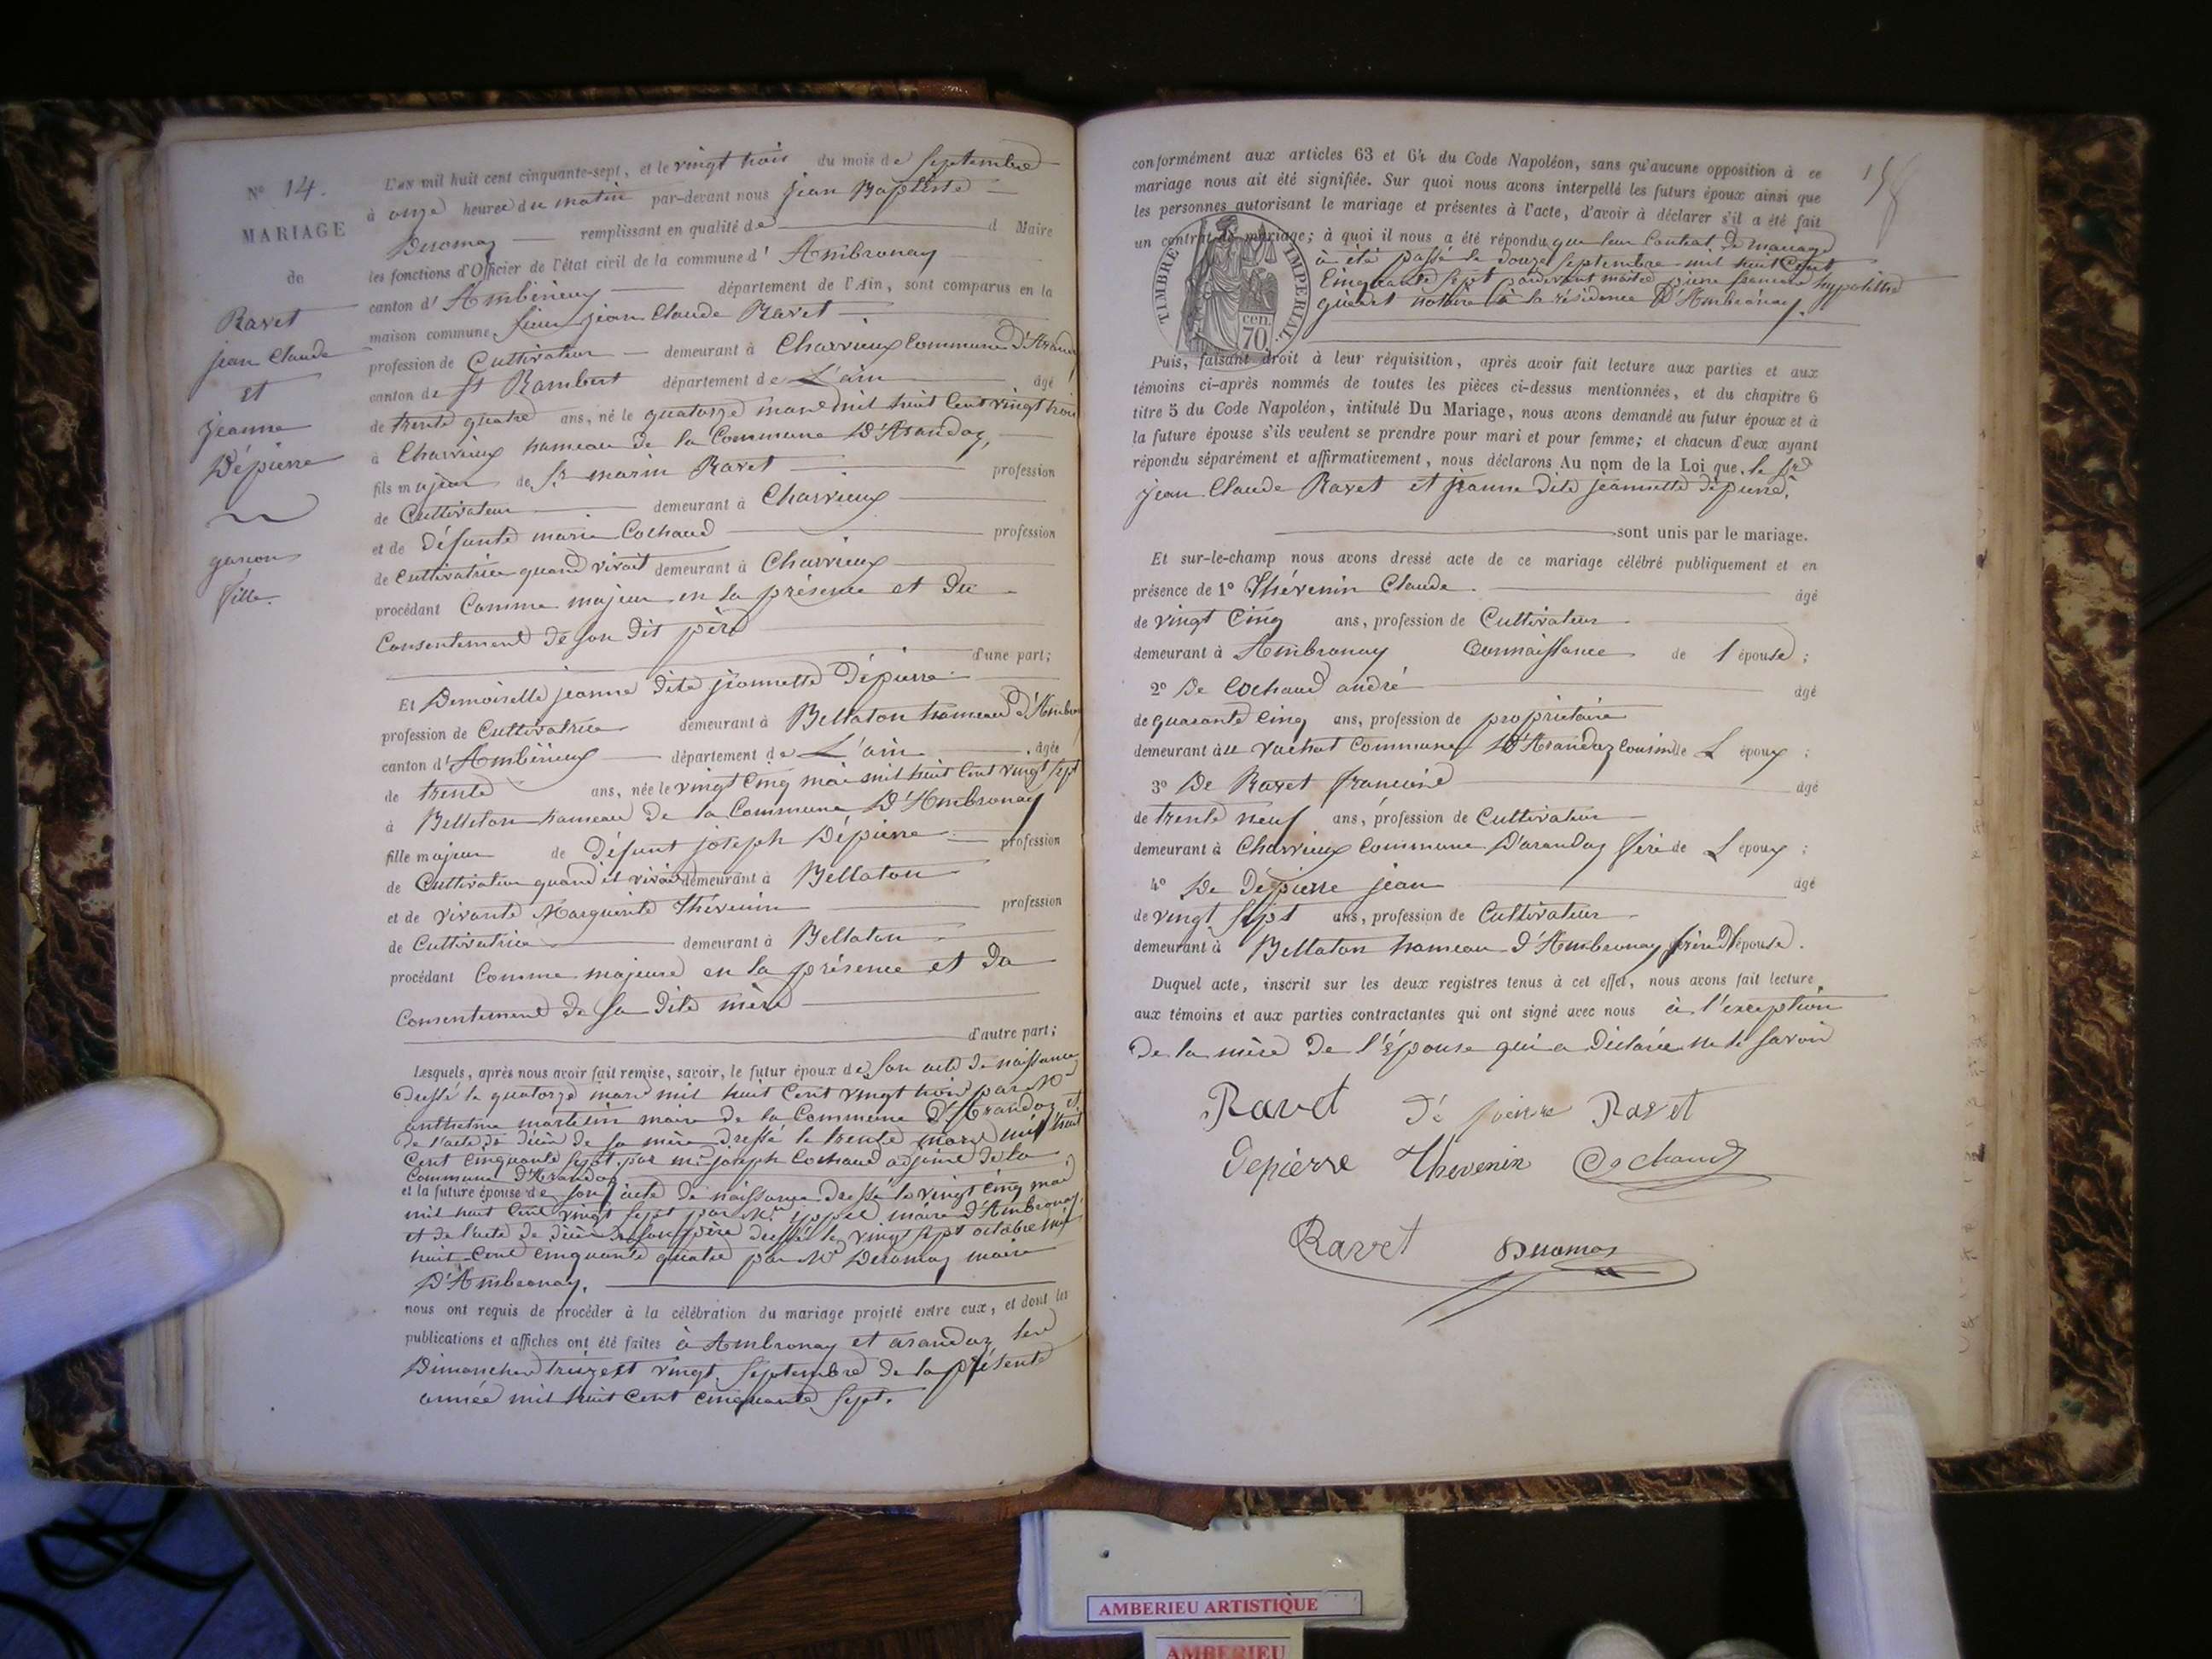 N° 14.
MARIAGE
de
Ravet
jean Claude
et
jeanne
Dépierre
garçon
fille.
L'an mil huit cent cinquante-sept, et le vingt trois du mois de Septembre
à onze heures du matin par-devant nous jean Baptiste
Deromas remplissant en qualité de d Maire
les fonctions d'Officier de l'état civil de la commune d' Ambronay
canton d' Ambérieux département de l'Ain, sont comparus en la
maison commune, sieur jean Claude Ravet
profession de Cultivateur demeurant à Charvieux Commune d'Arandaz
canton de St Rambert département de L'ain âgé
de trente quatre ans, né le quatorze mars mil huit Cent vingt trois
à Charvieux hameau de la Commune D'Arandaz,
fils majeur de Sr marin Ravet profession
de Cultivateur demeurant à Charvieux
et de défunte marie Cochaud profession
de Cultivatrice quand vivait demeurant à Charvieux
procédant Comme majeur en la présence et Du
Consentement de son dit père
d'une part;
Et Demoiselle jeanne dite jeannette Dépierre
profession de Cultivatrice demeurant à Bellaton hameau d'Ambronay
canton d' Ambérieux département de L'ain , âgée
de trente ans, née le vingt Cinq mai mil huit Cent vingt Sept
à Bellaton hameau de la Commune D'Ambronay
fille majeure de Défunt joseph Dépierre profession
de Cultivateur quand il vivait demeurant à Bellaton
et de vivante Marguerite Thévenin profession
de Cultivatrice demeurant à Bellaton
procédant Comme majeure en la présence et Du
Consentement de sa dite mère
d'autre part;
Lesquels, après nous avoir fait remise, savoir, le futur époux de son acte de naissance
Dressé le quatorze mars mil huit Cent vingt trois par Mr
anthelme martelin maire de la Commune D'Arandaz et
de l'acte de décès de sa mère dressé le trente mars mil huit
Cent Cinquante Sept, par mr joseph Cochaud adjoint de la
Commune D'Arandaz
et la future épouse de son acte de naissance dressé le vingt Cinq mai
mil huit Cent vingt Sept par Mr maire D'Ambronay,
et de l'acte de décès de son père dressé le vingt sept octobre mil
huit Cent Cinquante quatre par Mr Deromas maire
D'Ambronay.
nous ont requis de procéder à la célébration du mariage projeté entre eux, et dont les
publications et affiches ont été faites à Ambronay et arandaz les
Dimanches treize et vingt Septembre de la présente
année mil huit Cent Cinquante Sept.
158
conformément aux articles 63 et 64 du Code Napoléon, sans qu'aucune opposition à ce
mariage nous ait été signifiée. Sur quoi nous avons interpellé les futurs époux ainsi que
les personnes autorisant le mariage et présentes à l'acte, d'avoir à déclarer s'il a été fait
un contrat de mariage; à quoi il nous a été répondu que leur Contrat de mariage
à été passé le douze Septembre mil huit Cent
Cinquante Sept pardevant maître pierre francois hypolithe
notaire à la résidence D'Ambronay.
TIMBRE IMPERIAL
70 cen.
Puis, faisant droit à leur réquisition, après avoir fait lecture aux parties et aux
témoins ci-après nommés de toutes les pièces ci-dessus mentionnées, et du chapitre 6
titre 5 du Code Napoléon, intitulé Du Mariage, nous avons demandé au futur époux et à
la future épouse s'ils veulent se prendre pour mari et pour femme; et chacun d'eux ayant
répondu séparément et affirmativement, nous déclarons Au nom de la Loi que, le Sr
jean Claude Ravet et jeanne dite jeannette dépierre,
sont unis par le mariage.
Et sur-le-champ nous avons dressé acte de ce mariage célébré publiquement et en
présence de 1° Thévenin Claude âgé
de vingt Cinq ans, profession de Cultivateur
demeurant à Ambronay Connaissance de l épouse ;
2° De Cochaud andré âgé
de quarante Cinq ans, profession de propriétaire
demeurant au vachat Commune D'Arandaz Cousin de L époux ;
3° De Ravet francois âgé
de trente neuf ans, profession de Cultivateur
demeurant à Charvieux Commune D'arandaz frère de L époux ;
4° De Depierre jean âgé
de vingt Sept ans, profession de Cultivateur
demeurant à Bellaton hameau D'Ambronay frère D l'épouse .
Duquel acte, inscrit sur les deux registres tenus à cet effet, nous avons fait lecture
aux témoins et aux parties contractantes qui ont signé avec nous à l'exception
De la mère De l'Épouse qui a déclaré ne le savoir
Ravet Dé pierre Ravet
Depierre Thevenin Cochaud
Ravet Deromas
AMBERIEU ARTISTIQUE
AMBERIEU